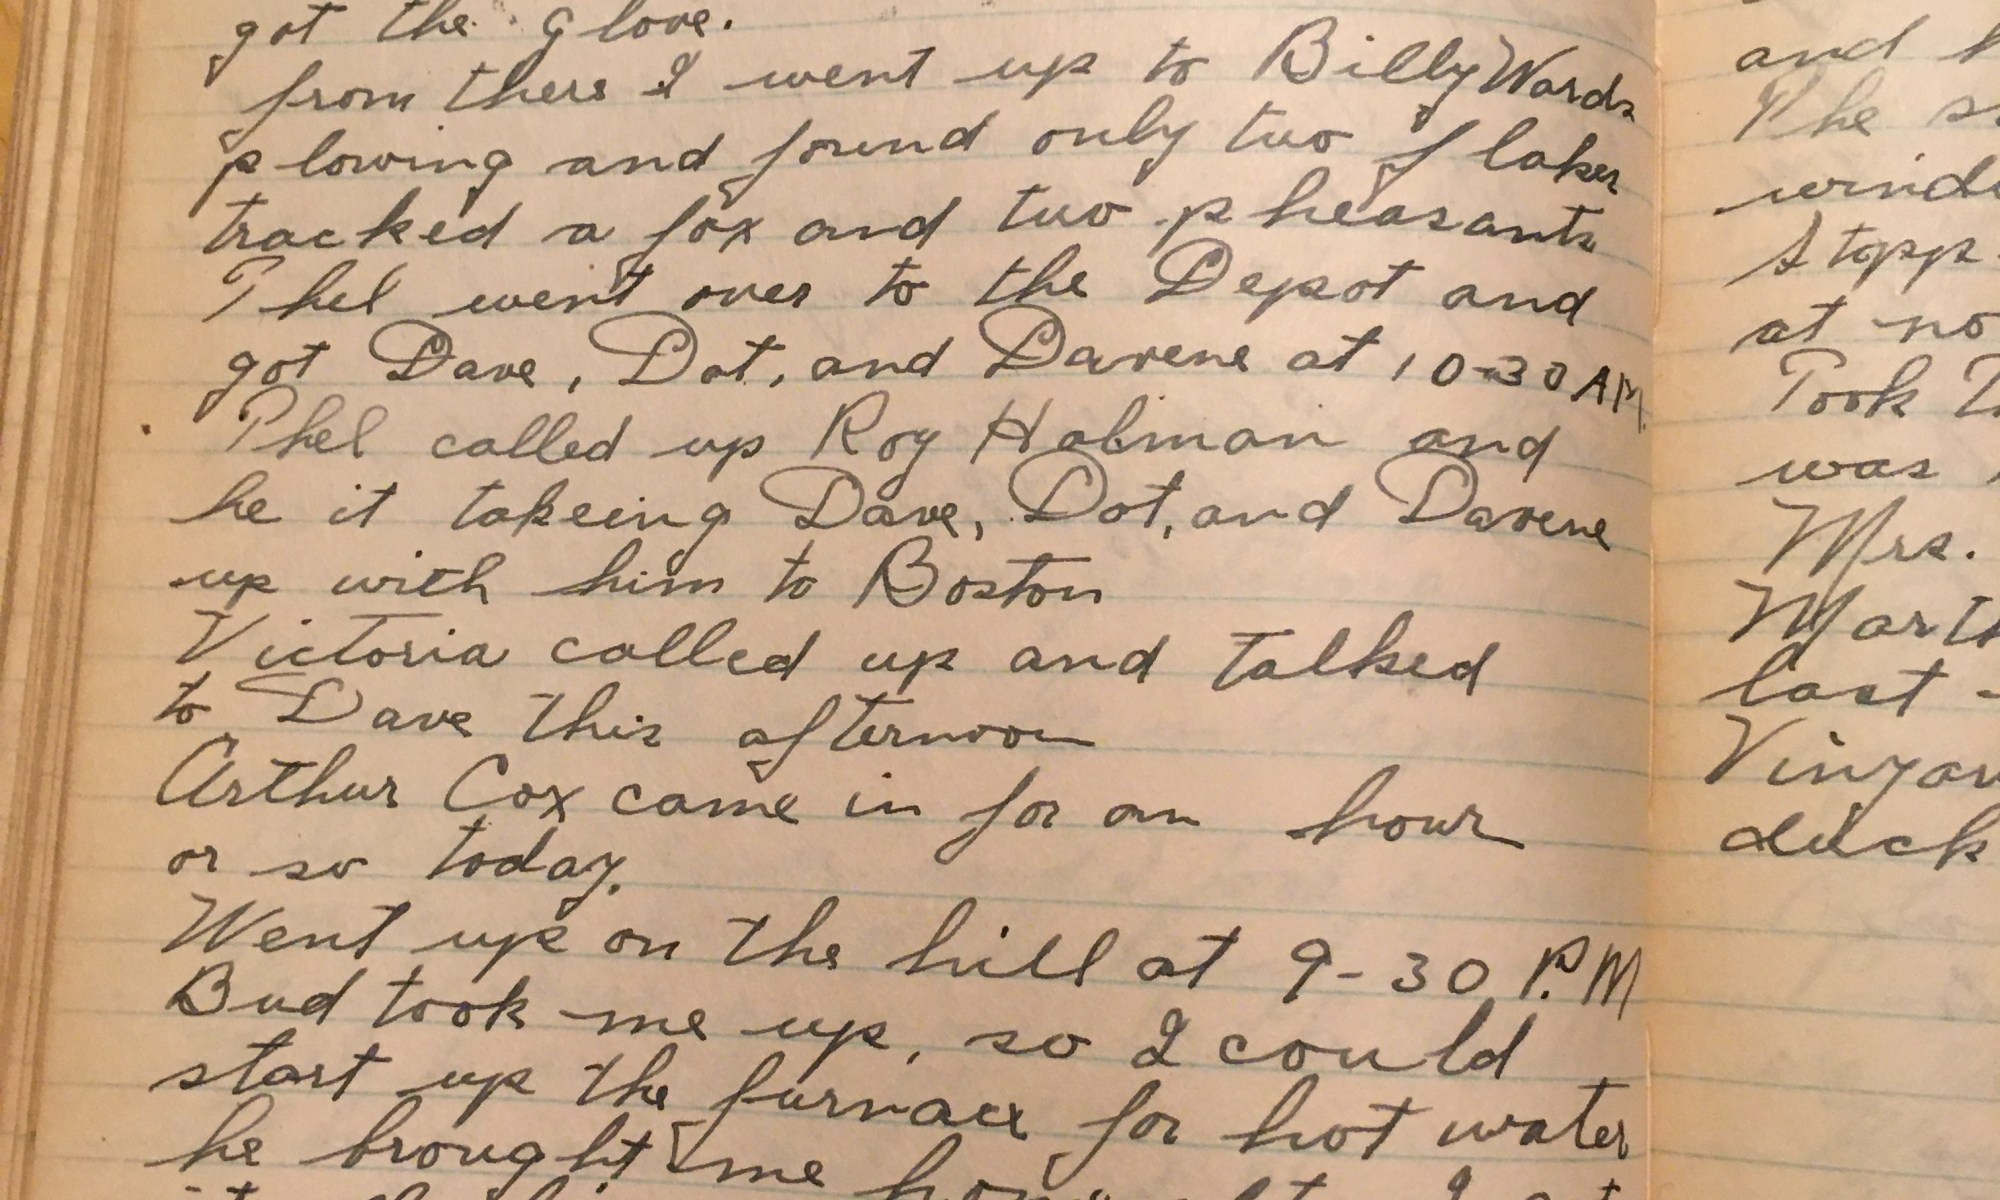 got the glove.
from there I went up to Billy Wards
plowing and found only two flakes
tracked a fox and two pheasants
Phel went over to the Depot and
got Dave, Dot, and Davene at 10-30 AM.
Phel called up Roy Holman and
he it takeing Dave, Dot, and Davene
up with him to Boston
Victoria called up and talked
to Dave this afternoon
Arthur Cox came in for an hour
or so today.
Went up on the hill at 9-30 P.M
Bud took me up, so I could
start up the furnace for hot water
he brought me
and
The
Stopp
at no
Took
was
Mrs.
last
duck